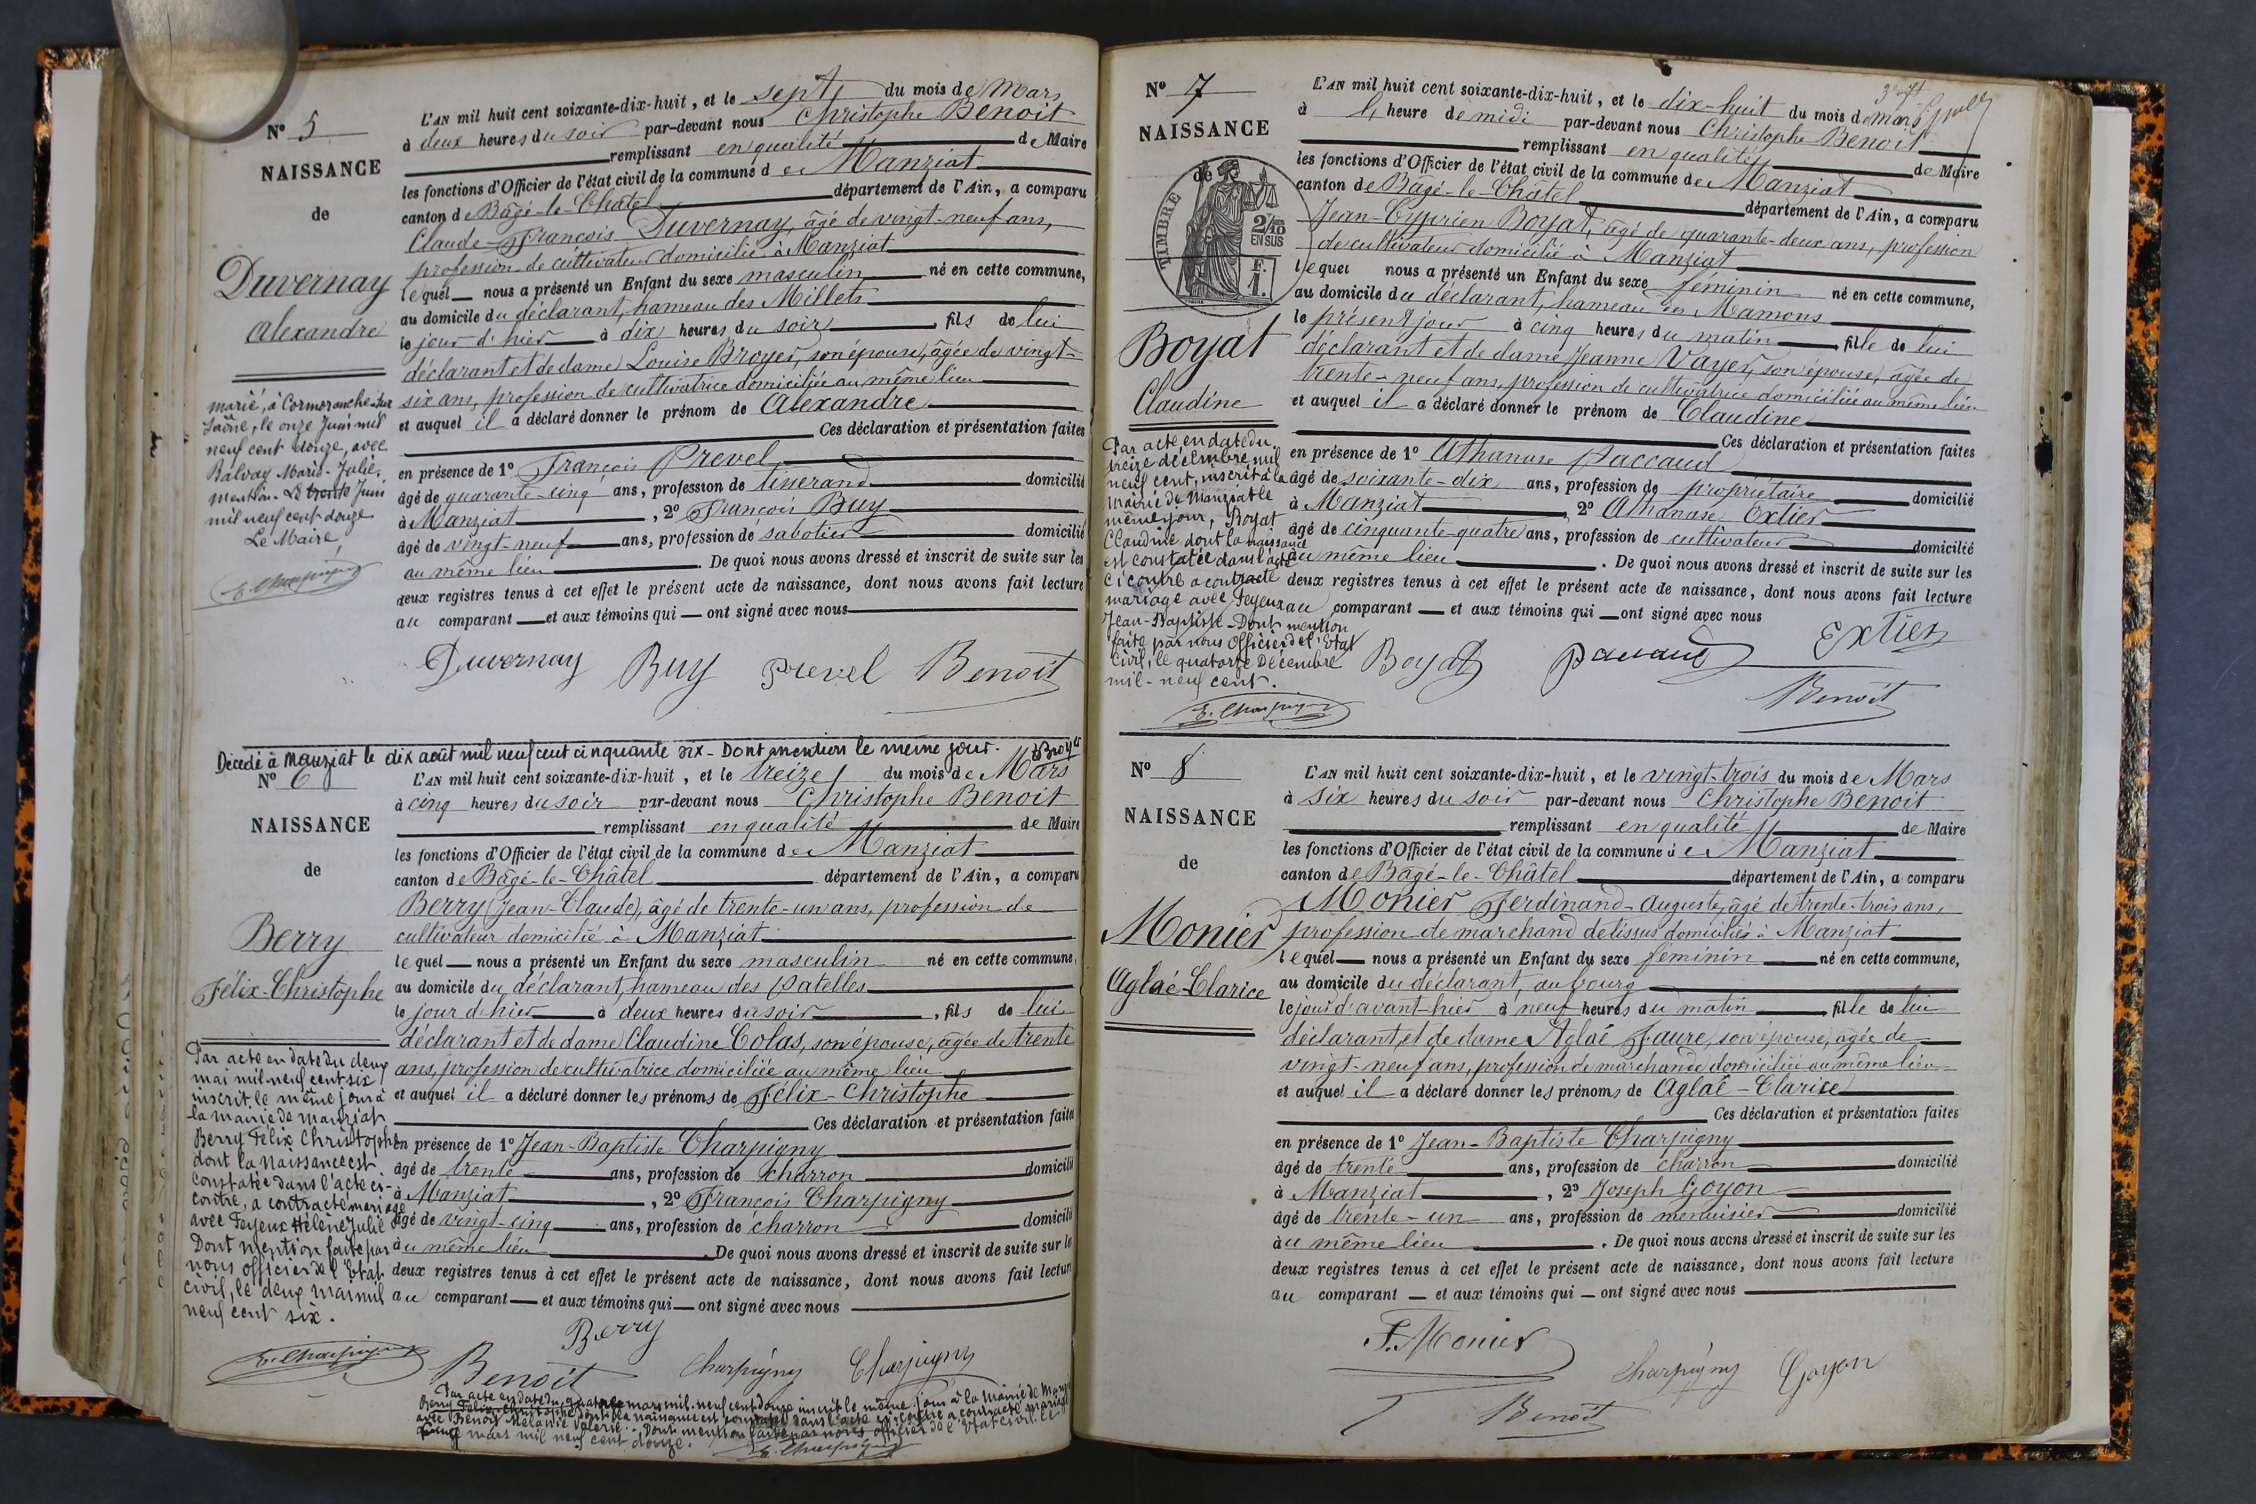 Nº 5
NAISSANCE
de
Duvernay
Alexandre
marié, à Cormoranche-sur
Saône, le onze Juin mil
neuf cent douze, avec
Balvay Marie-Julie.
mention. Le trente Juin
mil neuf cent douze
Le Maire,
L'AN mil huit cent soixante-dix-huit, et le sept du mois de Mars
à deux heures du soir par-devant nous Christophe Benoit
remplissant en qualité de Maire
les fonctions d'Officier de l'état civil de la commune de Manziat
canton de Bâgé-le-Châtel département de l'Ain, a comparu
Claude-François Duvernay, âgé de vingt-neuf ans,
profession de cultivateur domicilié à Manziat
lequel nous a présenté un Enfant du sexe masculin né en cette commune,
au domicile du déclarant, hameau des Millets
le jour d'hier à dix heures du soir, fils de lui
déclarant et de dame Louise Broyer, son épouse, âgée de vingt-
six ans, profession de cultivatrice domiciliée au même lieu
et auquel il a déclaré donner le prénom de Alexandre
Ces déclaration et présentation faites
en présence de 1º François Prevel
âgé de quarante-cinq ans, profession de tisserand domicilié
à Manziat, 2º François Buy
âgé de vingt-neuf ans, profession de sabotier domicilié
au même lieu. De quoi nous avons dressé et inscrit de suite sur les
deux registres tenus à cet effet le présent acte de naissance, dont nous avons fait lecture
au comparant et aux témoins qui ont signé avec nous
Duvernay Buy Prevel Benoit
Décédé à Manziat le dix août mil neuf cent cinquante six - Dont mention le même jour.
Nº 6
NAISSANCE
de
Berry
Félix-Christophe
Par acte en date du deux
mai mil neuf cent six
inscrit le même jour à
la mairie de Manziat
Berry Félix Christophe
dont la naissance est
constatée dans l'acte ci-
contre, a contracté mariage
avec Feyeux Hélène Julie
Dont mention faite par
nous officier de l'Etat
civil, le deux mai mil
neuf cent six.
L'AN mil huit cent soixante-dix-huit, et le treize du mois de Mars
à cinq heures du soir par-devant nous Christophe Benoit
remplissant en qualité de Maire
les fonctions d'Officier de l'état civil de la commune de Manziat
canton de Bâgé-le-Châtel département de l'Ain, a comparu
Berry (Jean-Claude), âgé de trente-un ans, profession de
cultivateur domicilié à Manziat
lequel nous a présenté un Enfant du sexe masculin né en cette commune,
au domicile du déclarant, hameau des Patelles
le jour d'hier à deux heures du soir, fils de lui
déclarant et de dame Claudine Colas, son épouse, âgée de trente
ans, profession de cultivatrice domiciliée au même lieu
et auquel il a déclaré donner les prénoms de Félix-Christophe
Ces déclaration et présentation faites
en présence de 1º Jean-Baptiste Charpigny
âgé de trente ans, profession de charron domicilié
à Manziat, 2º François Charpigny
âgé de vingt-cinq ans, profession de charron domicilié
au même lieu. De quoi nous avons dressé et inscrit de suite sur les
deux registres tenus à cet effet le présent acte de naissance, dont nous avons fait lecture
au comparant et aux témoins qui ont signé avec nous
Berry
Benoit Charpigny Charpigny
Par acte en date du quatorze mars mil-neuf cent douze inscrit le même jour à la Mairie de
Berry Félix-Christophe dont la naissance est constatée dans l'acte ci-contre a contracté mariage
avec Benoit Mélanie Valérie. Dont mention faite par nous officier de l'Etat civil le
mars mil neuf cent douze.
Nº 7
NAISSANCE
de
TIMBRE
2/10
EN SUS
F.
1.
Boyat
Claudine
Par acte en date du
treize décembre mil
neuf cent, inscrit à la
mairie de Manziat le
même jour, Boyat
Claudine dont la naissance
est constatée dans l'acte
ci contre a contracté
mariage avec Feyeux
Jean-Baptiste - Dont mention
faite par nous Officier de l'Etat
Civil, le quatorze Décembre
mil-neuf cent.
L'AN mil huit cent soixante-dix-huit, et le dix-huit du mois de mars
à heure de midi par-devant nous Christophe Benoit
remplissant en qualité de Maire
les fonctions d'Officier de l'état civil de la commune de Manziat
canton de Bâgé-le-Châtel département de l'Ain, a comparu
Jean-Cyprien Boyat, âgé de quarante-deux ans, profession
de cultivateur domicilié à Manziat
lequel nous a présenté un Enfant du sexe féminin né en cette commune,
au domicile du déclarant, hameau des Mamons
le présent jour à cinq heures du matin, fille de lui
déclarant et de dame Jeanne Vayer, son épouse, âgée de
trente-neuf ans, profession de cultivatrice domiciliée au même lieu
et auquel il a déclaré donner le prénom de Claudine
Ces déclaration et présentation faites
en présence de 1º Athanase Paccaud
âgé de soixante-dix ans, profession de propriétaire domicilié
à Manziat, 2º Athanase Extier
âgé de cinquante-quatre ans, profession de cultivateur domicilié
au même lieu. De quoi nous avons dressé et inscrit de suite sur les
deux registres tenus à cet effet le présent acte de naissance, dont nous avons fait lecture
au comparant et aux témoins qui ont signé avec nous
Boyat Paccaud Extier
Benoit
Nº 8
NAISSANCE
de
Monier
Aglaé-Clarice
L'AN mil huit cent soixante-dix-huit, et le vingt-trois du mois de Mars
à six heures du soir par-devant nous Christophe Benoit
remplissant en qualité de Maire
les fonctions d'Officier de l'état civil de la commune de Manziat
canton de Bâgé-le-Châtel département de l'Ain, a comparu
Monier Ferdinand-Auguste, âgé de trente-trois ans,
profession de marchand de tissus domicilié à Manziat
lequel nous a présenté un Enfant du sexe féminin né en cette commune,
au domicile du déclarant, au bourg
le jour d'avant-hier à neuf heures du matin, fille de lui
déclarant, et de dame Aglaé Faure, son épouse, âgée de
vingt-neuf ans, profession de marchande domiciliée au même lieu
et auquel il a déclaré donner les prénoms de Aglaé-Clarice
Ces déclaration et présentation faites
en présence de 1º Jean-Baptiste Charpigny
âgé de trente ans, profession de charron domicilié
à Manziat, 2º Joseph Goyon
âgé de trente-un ans, profession de menuisier domicilié
au même lieu. De quoi nous avons dressé et inscrit de suite sur les
deux registres tenus à cet effet le présent acte de naissance, dont nous avons fait lecture
au comparant et aux témoins qui ont signé avec nous
F. Monier
Charpigny Goyon
Benoit